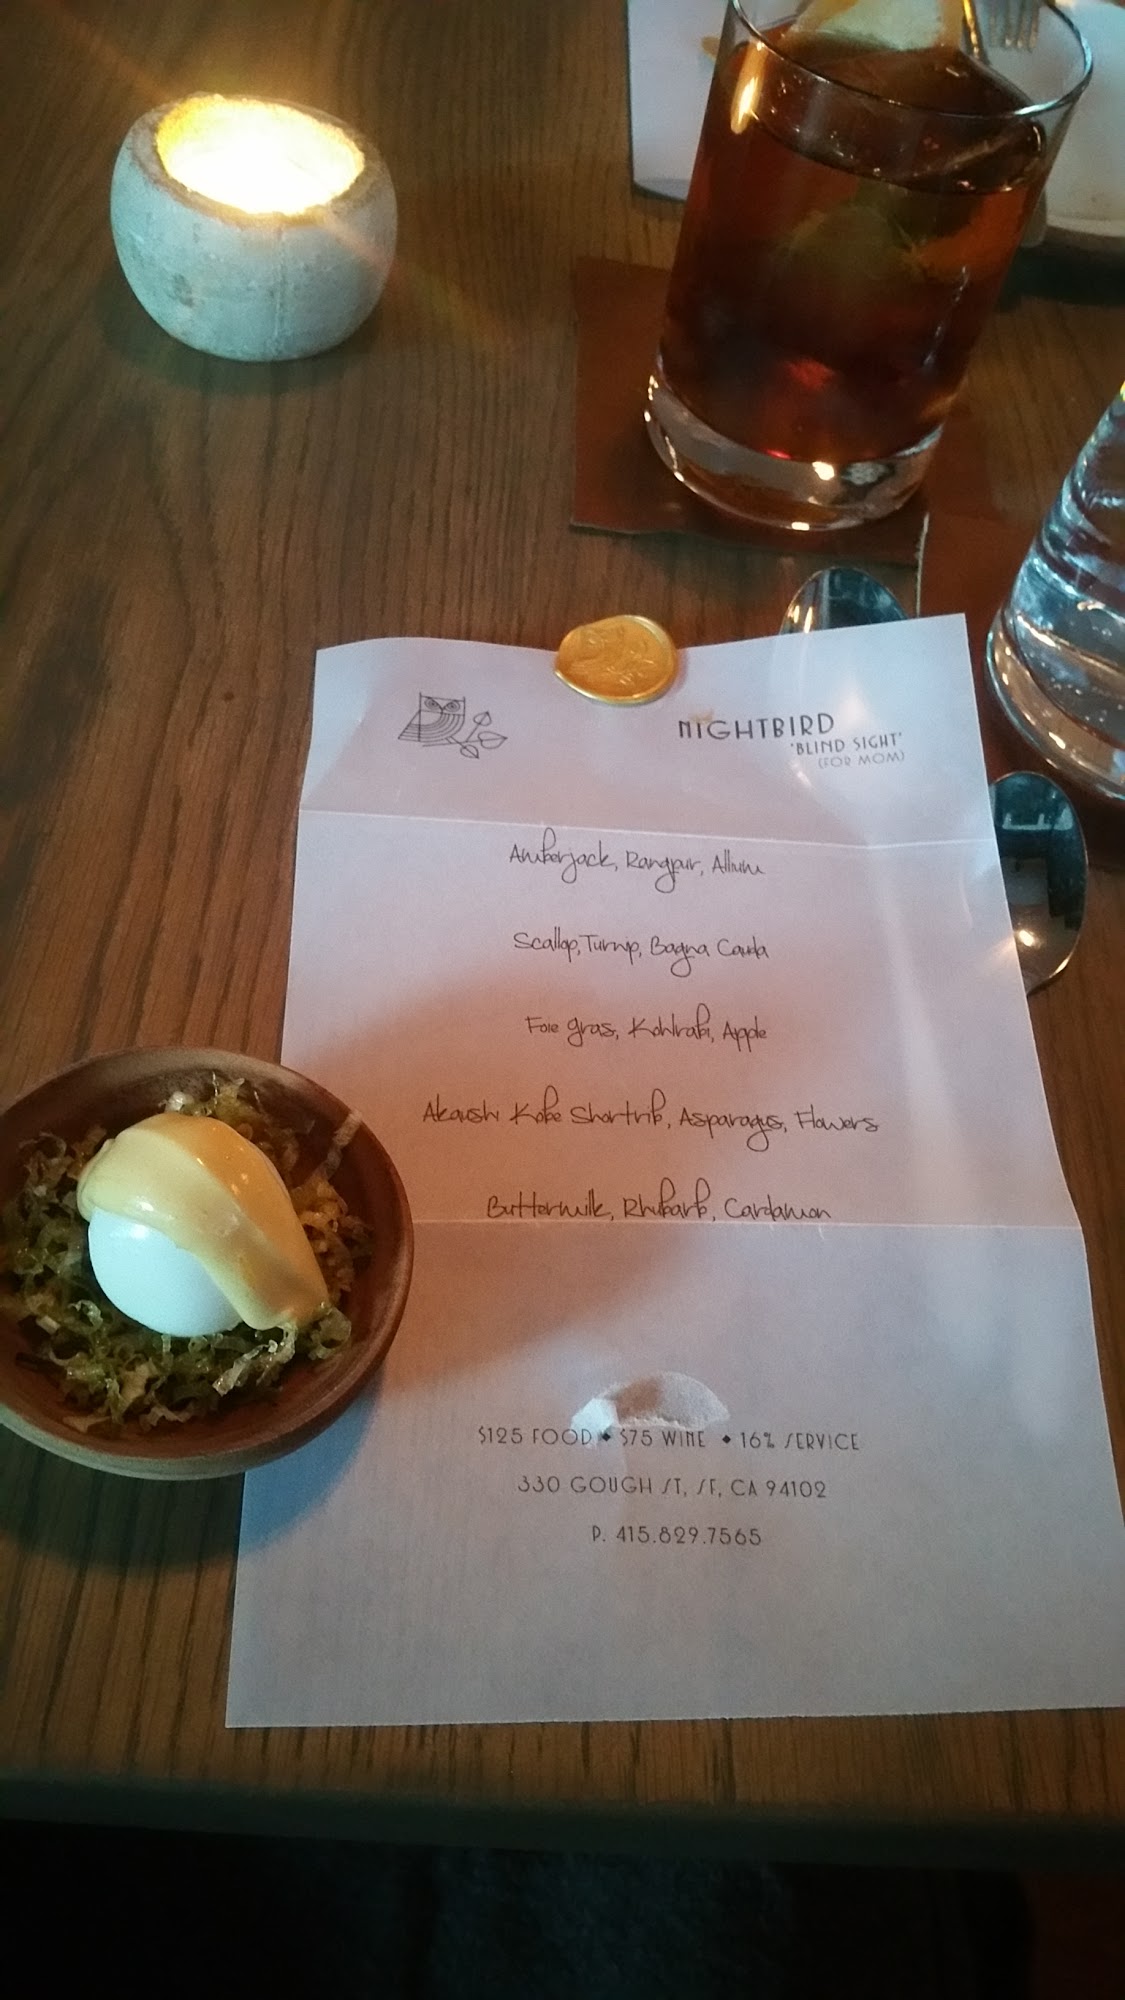 NIGHTBIRD
'BLIND SIGHT'
(FOR MOM)
Amberjack, Rangpur, Allium
Scallop, Turnip, Bagna Cauda
Foie gras, Kohlrabi, Apple
Akaushi Kobe Shortrib, Asparagus, Flowers
Buttermilk, Rhubarb, Cardamon
$125 FOOD ◆ $75 WINE ◆ 16% SERVICE
330 GOUGH ST, SF, CA 94102
P. 415.829.7565